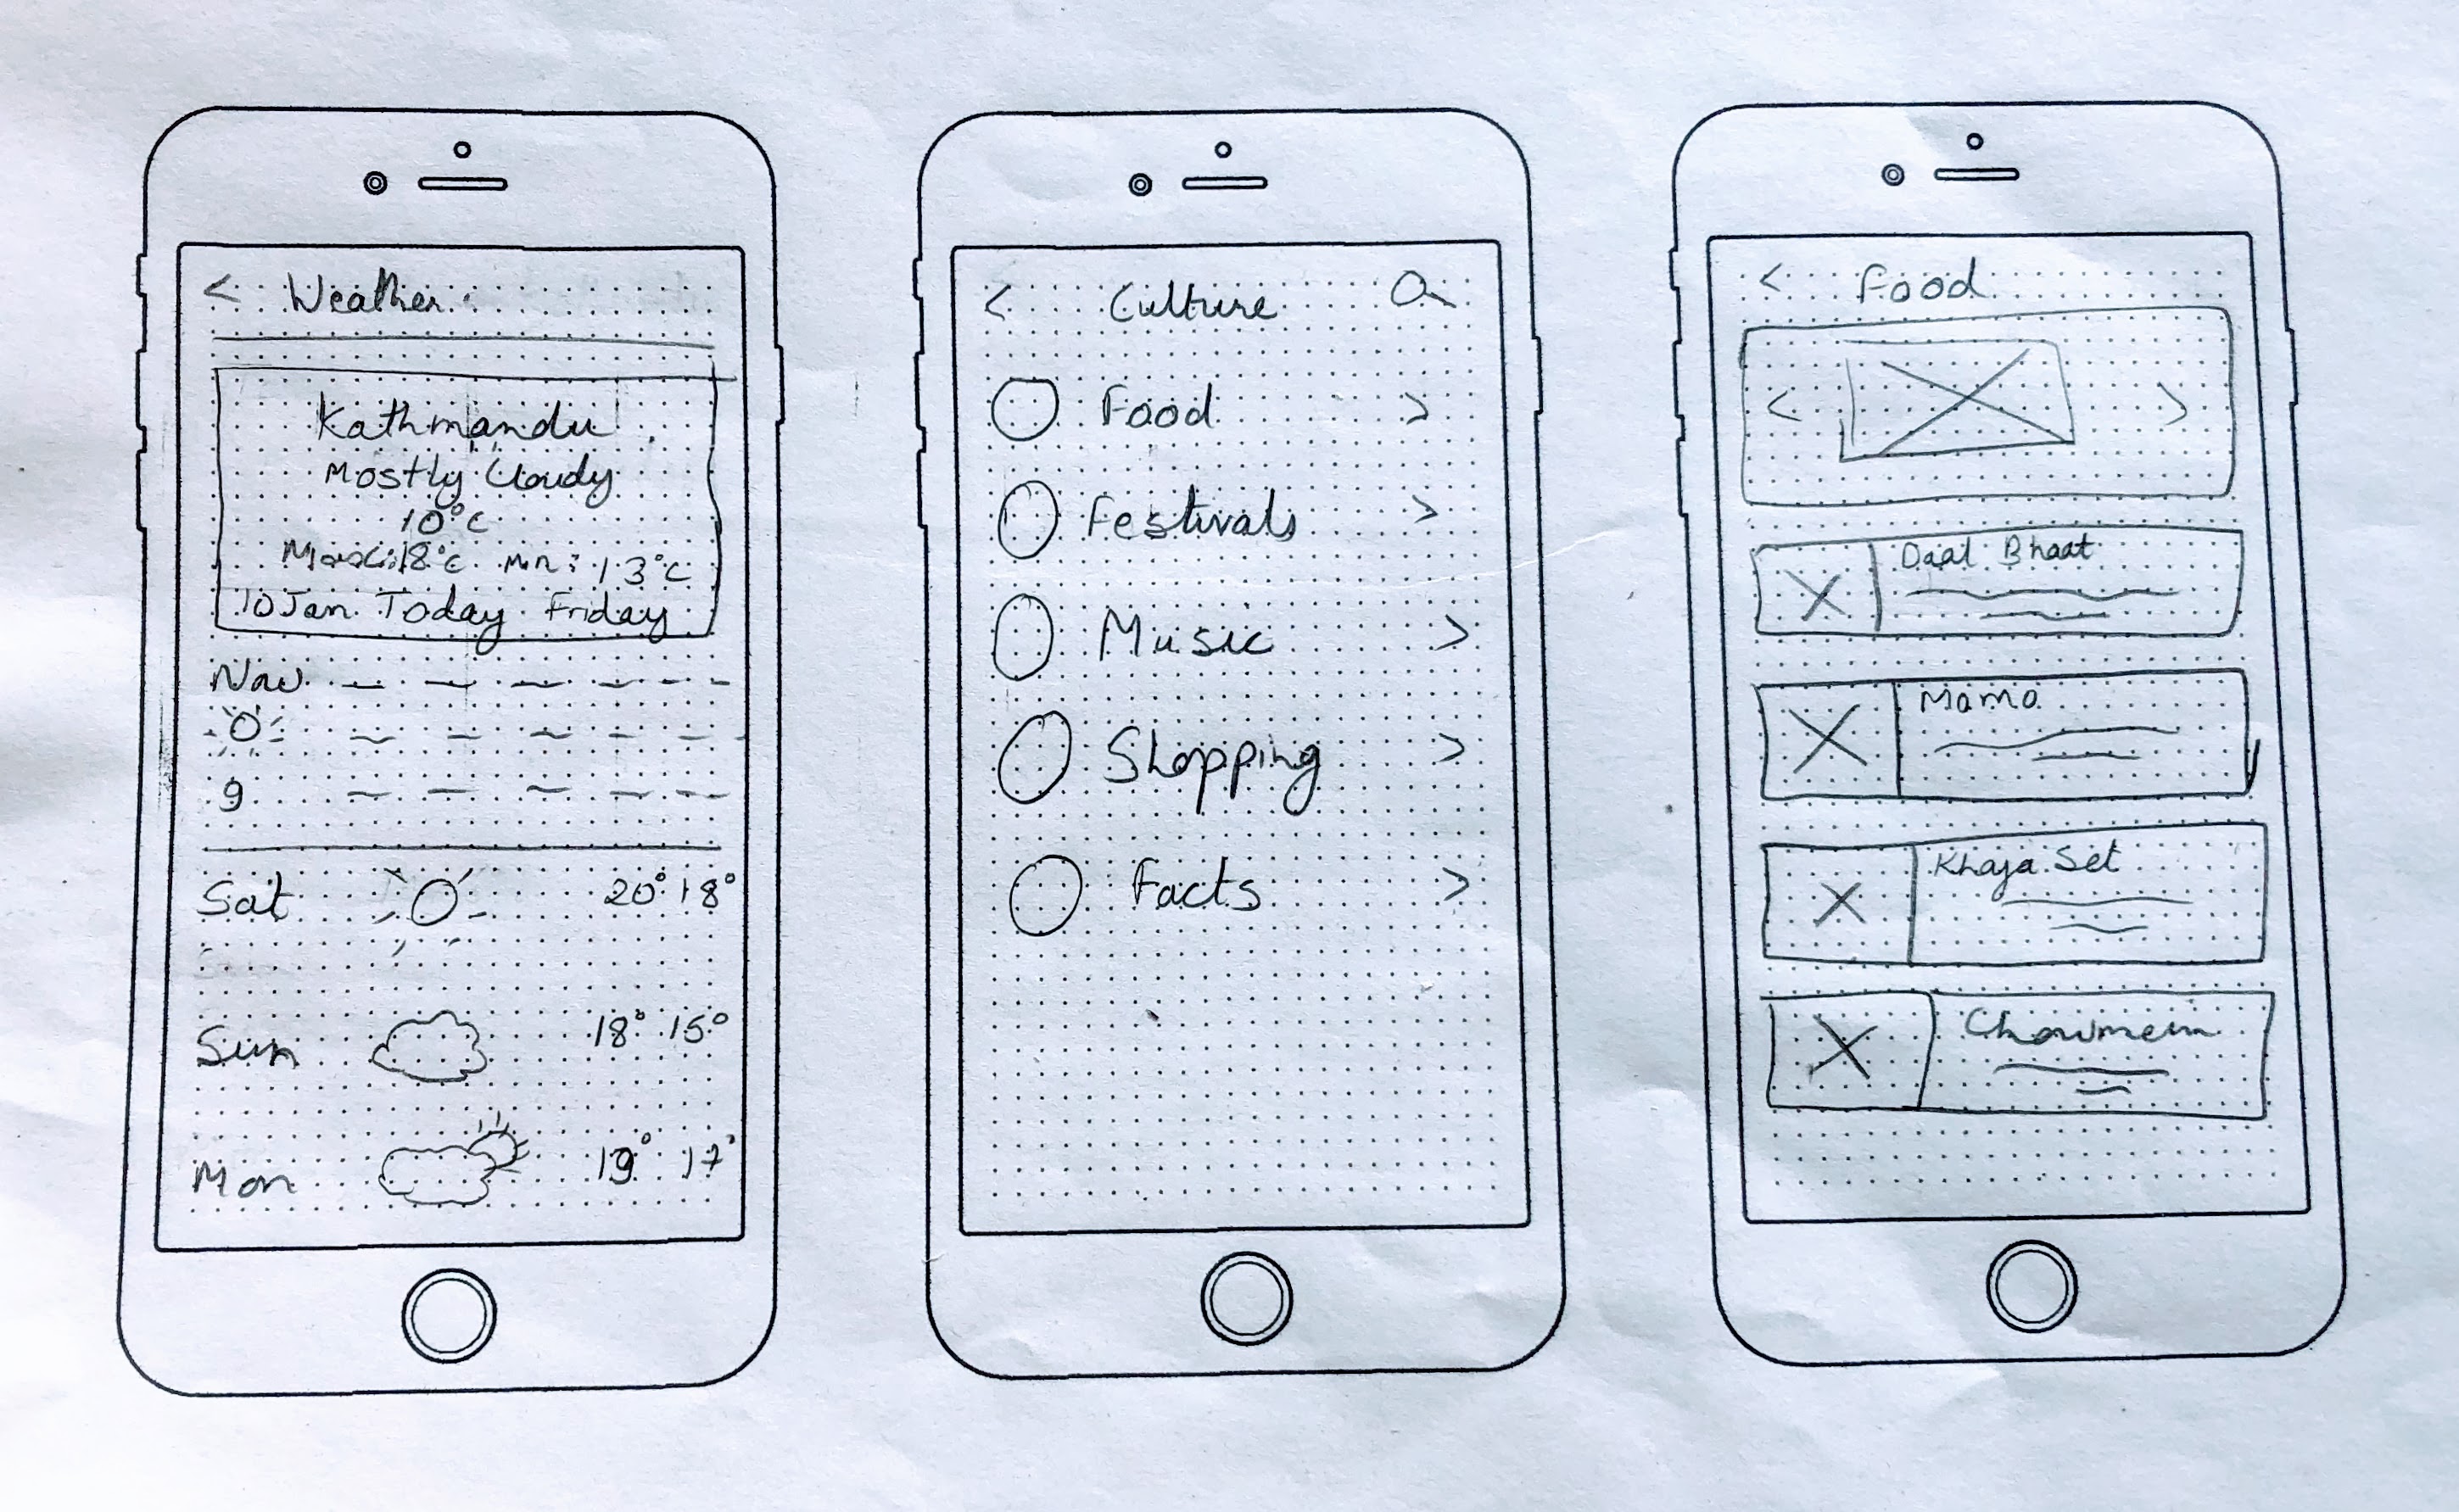 < Weather
Kathmandu
Mostly Cloudy
10°C
Max: 18°C Min: 13°C
10 Jan Today Friday
Now
9
Sat 20° 18°
Sun 18° 15°
Mon 19° 17°
< Culture
Food >
Festivals >
Music >
Shopping >
Facts >
< Food
< >
Daal Bhaat
Momo
Khaja Set
Chowmein